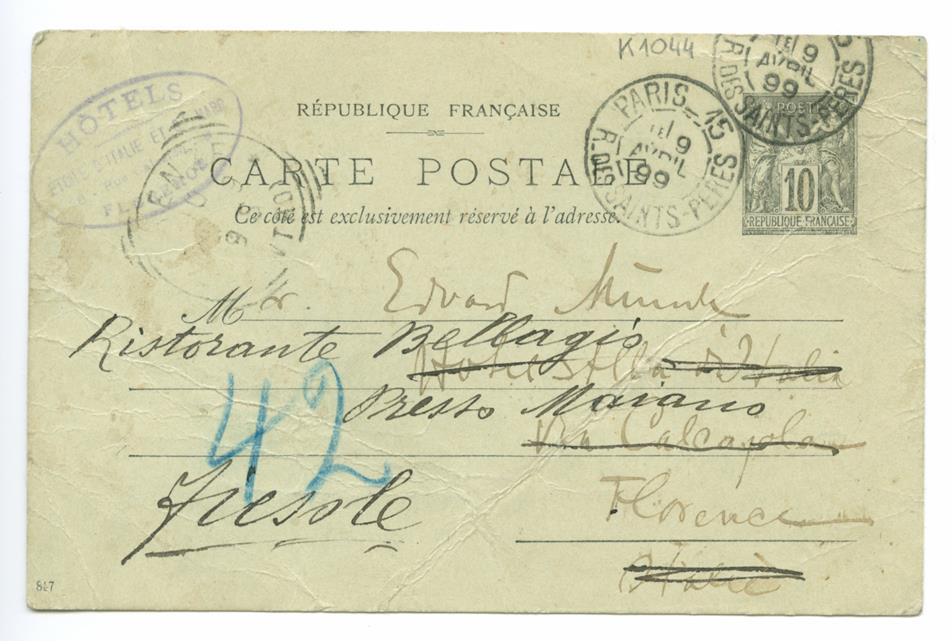 K1044
HÔTELS
ITALIE ET
FL
RÉPUBLIQUE FRANÇAISE
CARTE POSTALE
Ce côté est exclusivement réservé à l'adresse.
PARIS 15
9
AVRIL
99
R. DES SAINTS-PÈRES
9
AVRIL
99
R. DES SAINTS-PÈRES
POSTE
10
REPUBLIQUE FRANÇAISE
Mr. Edvard Munch
Ristorante Bellagio
Hotel Stella d'Italia
Presso Maiano
Via Calzajola
42
Fiesole
Florence
Italie
847